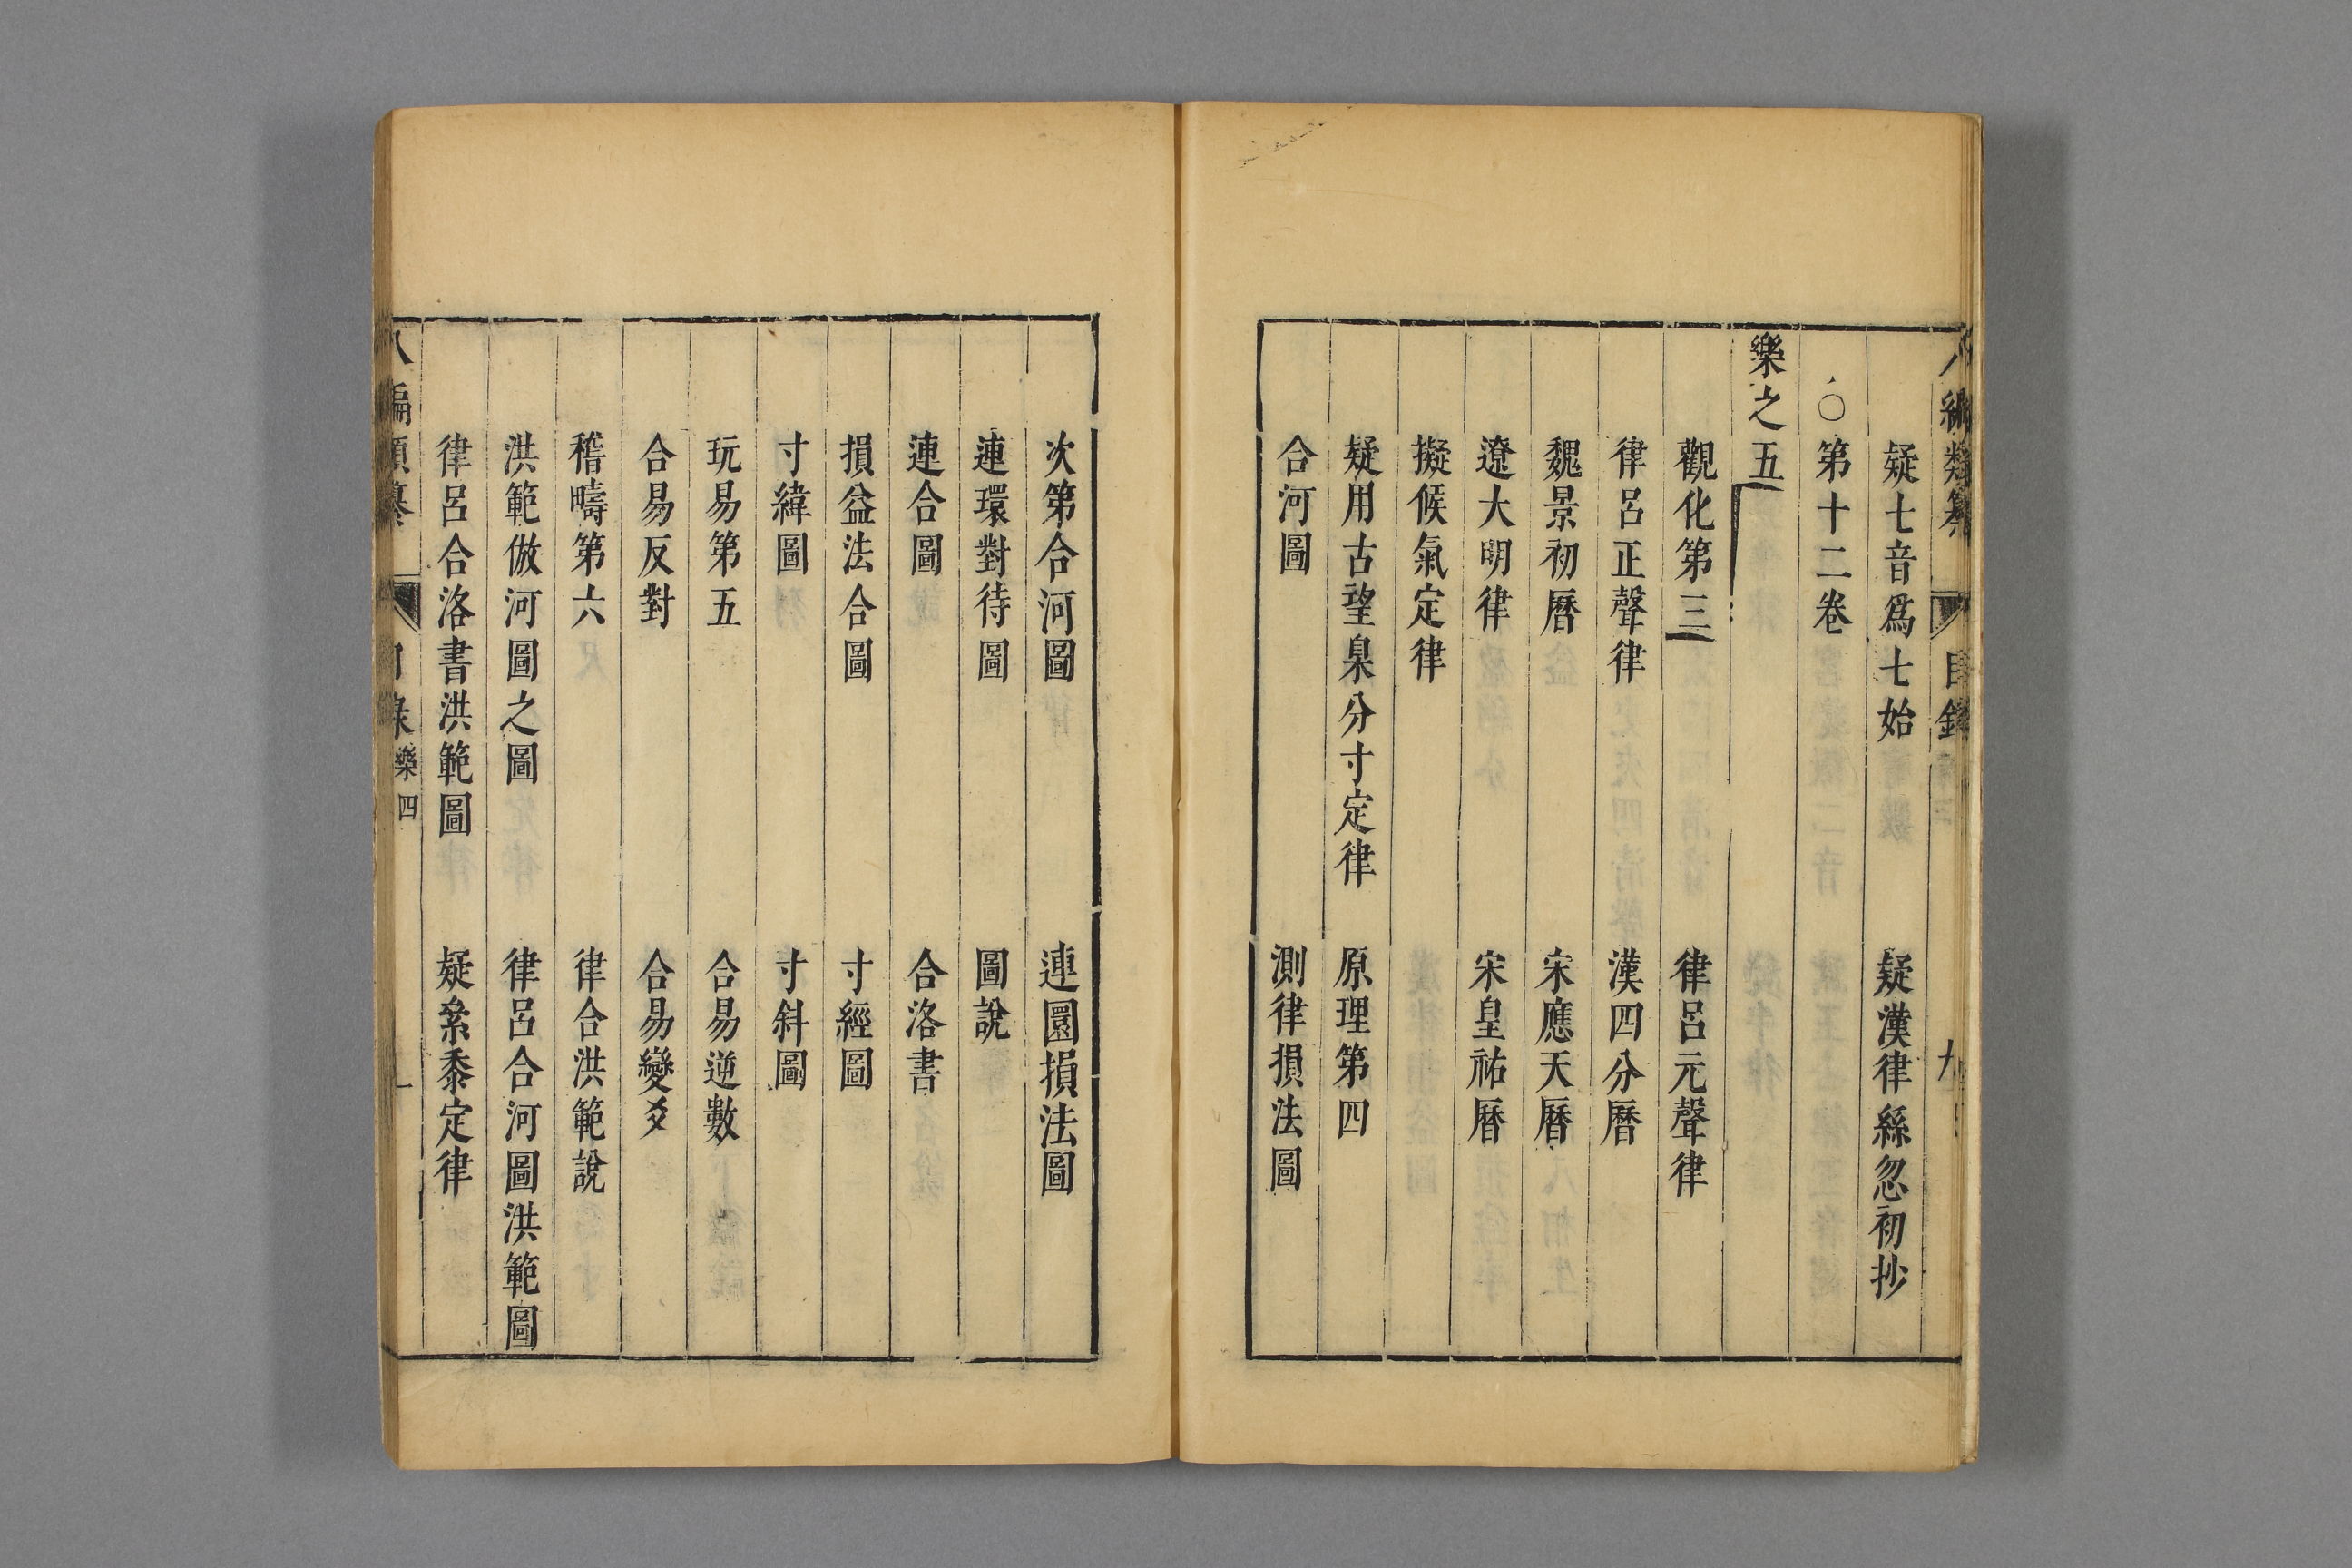 八編類纂 目錄 九
疑七音爲七始 疑漢律絲忽初抄
○第十二卷
樂之五
觀化第三 律呂元聲律
律呂正聲律 漢四分曆
魏景初曆 宋應天曆
遼大明律 宋皇祐曆
擬候氣定律
疑用古望臬分寸定律 原理第四
合河圖 測律損法圖
次第合河圖 連圜損法圖
連環對待圖 圖說
連合圖 合洛書
損益法合圖 寸經圖
寸緯圖 寸斜圖
玩易第五 合易逆數
合易反對 合易變爻
稽疇第六 律合洪範說
洪範倣河圖之圖 律呂合河圖洪範圖
律呂合洛書洪範圖 疑絫黍定律
八編類纂 目錄 樂四